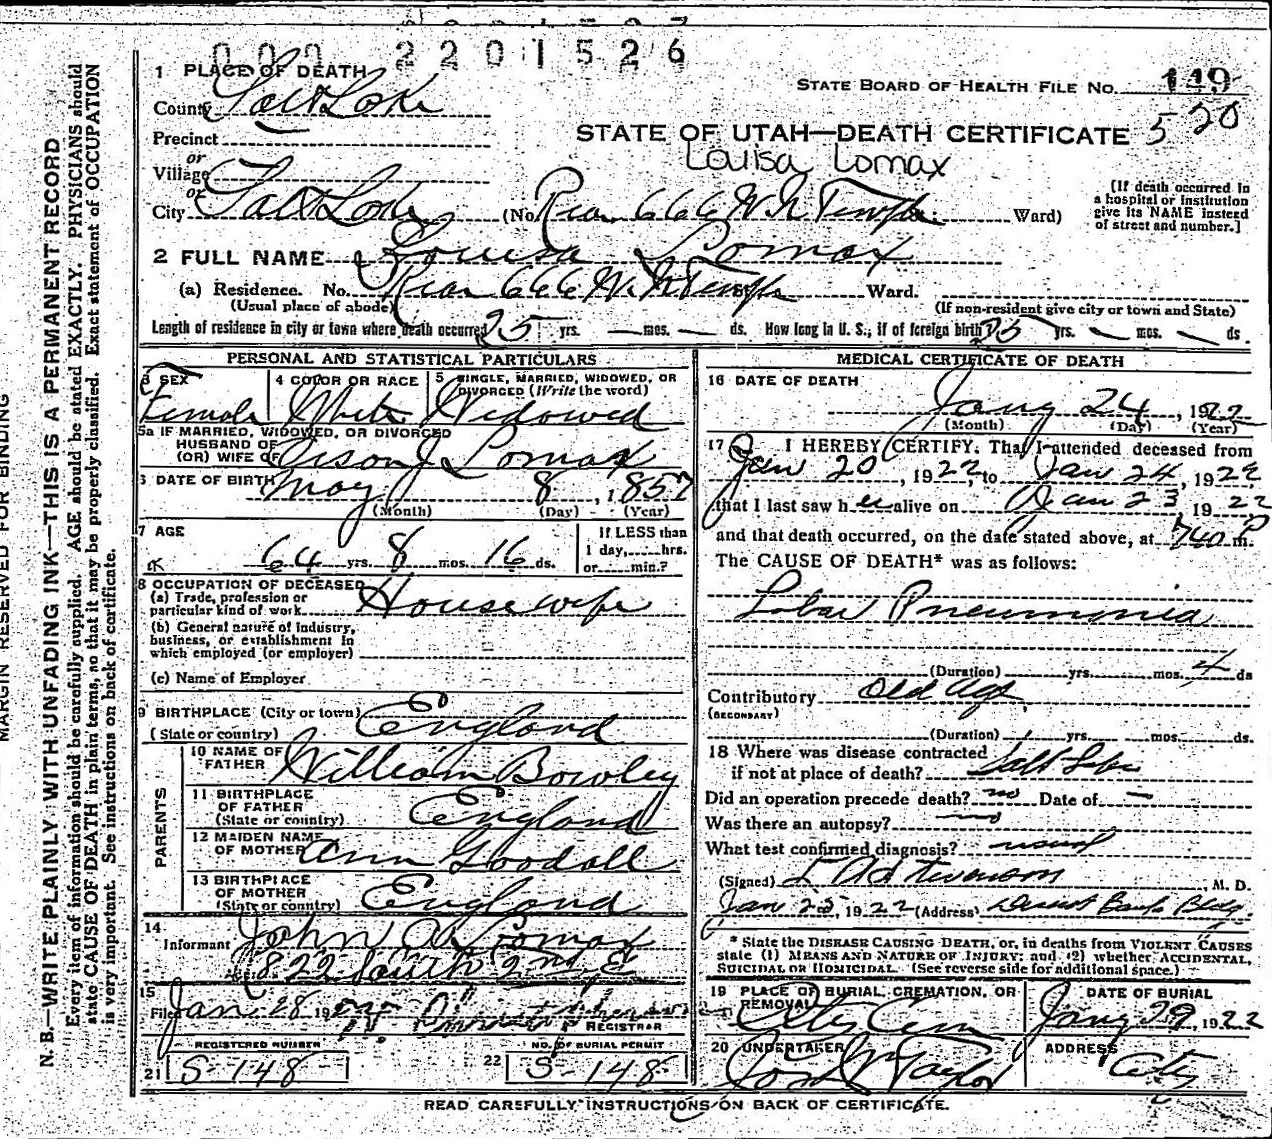 000 2201526
1 PLACE OF DEATH
STATE BOARD OF HEALTH FILE No. 149
County Salt Lake
520
Precinct
STATE OF UTAH—DEATH CERTIFICATE
or
Village
Louisa Lomax
or
City Salt Lake (No. Rear 666 W. N. Temple Ward)
[If death occurred in
a hospital or institution
give its NAME instead
of street and number.]
2 FULL NAME Louisa Lomax
(a) Residence. No. Rear 666 W. N Temple Ward.
(Usual place of abode)
(If non-resident give city or town and State)
Length of residence in city or town where death occurred 25 yrs. — mos. — ds. How long in U. S., if of foreign birth yrs. — mos. — ds.
PERSONAL AND STATISTICAL PARTICULARS
3 SEX
Female
4 COLOR OR RACE
White
5 SINGLE, MARRIED, WIDOWED, OR
DIVORCED (Write the word)
Widowed
5a IF MARRIED, WIDOWED, OR DIVORCED
HUSBAND OF
(OR) WIFE OF Orson J Lomax
6 DATE OF BIRTH May 8, 1857
(Month) (Day) (Year)
7 AGE
64 yrs. 8 mos. 16 ds.
If LESS than
1 day, hrs.
or min.?
8 OCCUPATION OF DECEASED
(a) Trade, profession or
particular kind of work Housewife
(b) General nature of industry,
business, or establishment in
which employed (or employer)
(c) Name of Employer
9 BIRTHPLACE (City or town)
(State or country) England
PARENTS
10 NAME OF
FATHER William Bowley
11 BIRTHPLACE
OF FATHER
(State or country) England
12 MAIDEN NAME
OF MOTHER Ann Goodall
13 BIRTHPLACE
OF MOTHER
(State or country) England
14
Informant John Lomax
1822 South 2nd E
15
Filed Jan 28 19
REGISTRAR
REGISTERED NUMBER
21 S-148
NO. OF BURIAL PERMIT
22 S-148
MEDICAL CERTIFICATE OF DEATH
16 DATE OF DEATH
Jany 24, 1922
(Month) (Day) (Year)
17 I HEREBY CERTIFY, That I attended deceased from
Jan 20, 1922, to Jan 24, 1922
that I last saw her alive on Jan 23, 1922
and that death occurred, on the date stated above, at 740 P m.
The CAUSE OF DEATH* was as follows:
Lobar Pneumonia
(Duration) yrs. mos. 4 ds
Contributory Old Age
(SECONDARY)
(Duration) yrs. mos. ds.
18 Where was disease contracted
if not at place of death? Salt Lake
Did an operation precede death? no Date of —
Was there an autopsy? no
What test confirmed diagnosis? usual
(Signed) Stevenson, M. D.
Jan 25, 1922 (Address) Deseret Bank Bldg.
* State the DISEASE CAUSING DEATH, or, in deaths from VIOLENT CAUSES
state (1) MEANS AND NATURE OF INJURY; and (2) whether ACCIDENTAL,
SUICIDAL OR HOMICIDAL. (See reverse side for additional space.)
19 PLACE OF BURIAL, CREMATION, OR
REMOVAL
City Cem
DATE OF BURIAL
Jany 29, 1922
20 UNDERTAKER
Taylor
ADDRESS
City
READ CAREFULLY INSTRUCTIONS ON BACK OF CERTIFICATE.
MARGIN RESERVED FOR BINDING
N. B.—WRITE PLAINLY WITH UNFADING INK—THIS IS A PERMANENT RECORD
Every item of information should be carefully supplied. AGE should be stated EXACTLY. PHYSICIANS should
state CAUSE OF DEATH in plain terms, so that it may be properly classified. Exact statement of OCCUPATION
is very important. See instructions on back of certificate.